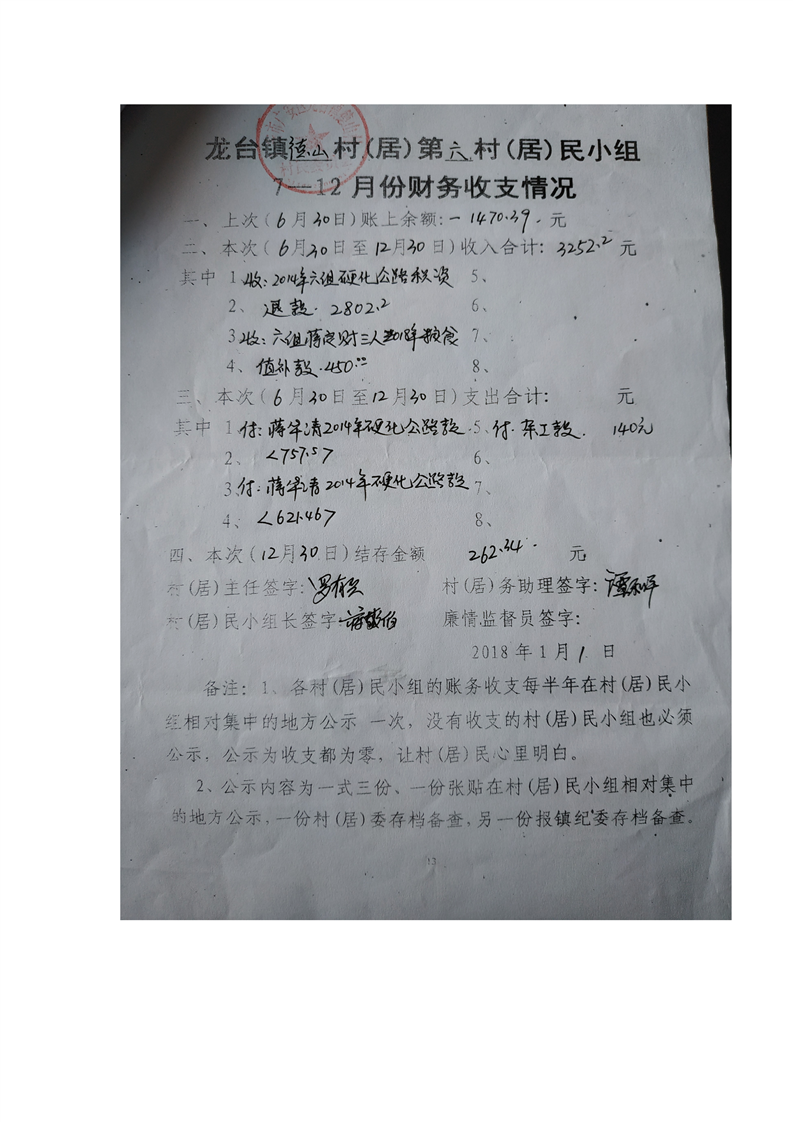 龙台镇德山村(居)第六村(居)民小组
7—12月份财务收支情况
一、上次(6月30日)账上余额:-1470.39.元
二、本次(6月30日至12月30日)收入合计:3252.2元
其中 1收:2014年六组硬化公路积资 5、
2、退款.2802.2 6、
3收:六组蒋定财三人 粮食 7、
4、值补款.450.00 8、
三、本次(6月30日至12月30日)支出合计: 元
其中 1付:蒋华清2014年硬化公路款.5、付. 工款. 140元
2、<757.5> 6、
3付:蒋华清2014年硬化公路款 7、
4、<621.46> 8、
四、本次(12月30日)结存金额 262.34. 元
村(居)主任签字: 村(居)务助理签字:
村(居)民小组长签字 廉情监督员签字:
2018年1月1日
备注:1、各村(居)民小组的账务收支每半年在村(居)民小
组相对集中的地方公示 一次,没有收支的村(居)民小组也必须
公示,公示为收支都为零,让村(居)民心里明白。
2、公示内容为一式三份、一份张贴在村(居)民小组相对集中
的地方公示,一份村(居)委存档备查,另一份报镇纪委存档备查。
13